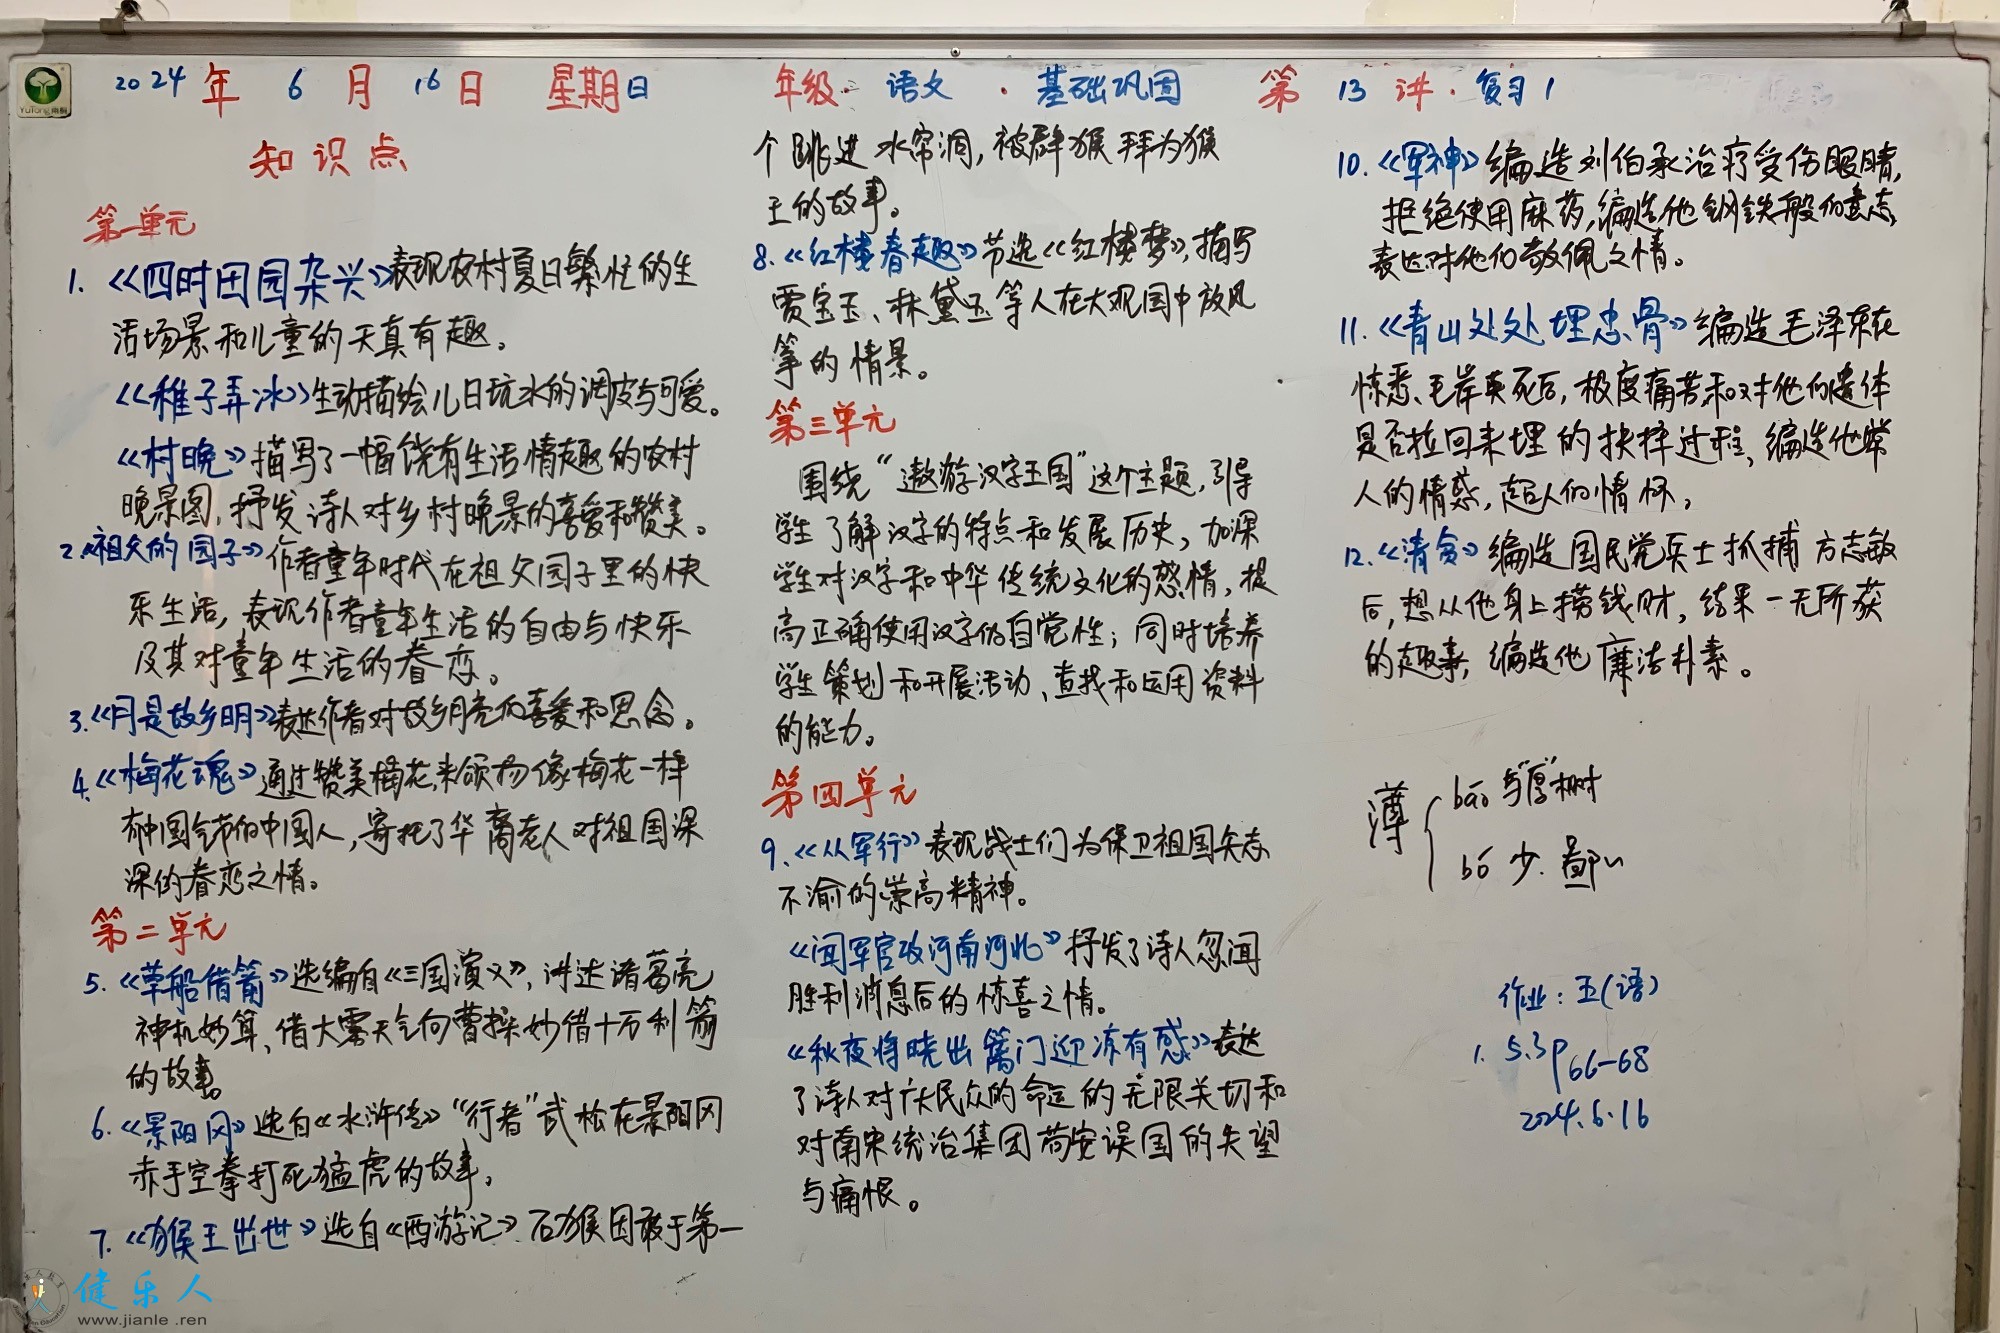 2024年6月16日 星期日 年级·语文·基础巩固 第13讲·复习1
知识点
第一单元
1.《四时田园杂兴》表现农村夏日繁忙的生
活场景和儿童的天真有趣。
《稚子弄冰》生动描绘儿日玩冰的调皮与可爱。
《村晚》描写了一幅饶有生活情趣的农村
晚景图,抒发诗人对乡村晚景的喜爱和赞美。
2.《祖父的园子》作者童年时代在祖父园子里的快
乐生活,表现作者童年生活的自由与快乐
及其对童年生活的眷恋。
3.《月是故乡明》表达作者对故乡月亮的喜爱和思念。
4.《梅花魂》通过赞美梅花,来颂扬像梅花一样
有中国气节的中国人,寄托了华裔老人对祖国深
深的眷恋之情。
第二单元
5.《草船借箭》选编自《三国演义》,讲述诸葛亮
神机妙算、借大雾天气向曹操妙借十万利箭
的故事。
6.《景阳冈》选自《水浒传》“行者”武松在景阳冈
赤手空拳打死猛虎的故事。
7.《猴王出世》选自《西游记》石猴因敢于第一
个跳进水帘洞,被群猴拜为猴
王的故事。
8.《红楼春趣》节选《红楼梦》,描写
贾宝玉、林黛玉等人在大观园中放风
筝的情景。
第三单元
围绕“遨游汉字王国”这个主题,引导
学生了解汉字的特点和发展历史,加深
学生对汉字和中华传统文化的感情,提
高正确使用汉字的自觉性;同时培养
学生策划和开展活动、查找和运用资料
的能力。
第四单元
9.《从军行》表现战士们为保卫祖国矢志
不渝的崇高精神。
《闻军官收河南河北》抒发了诗人忽闻
胜利消息后的惊喜之情。
《秋夜将晓出篱门迎凉有感》表达
了诗人对广大民众的命运的无限关切和
对南宋统治集团苟安误国的失望
与痛恨。
10.《军神》编造刘伯承治疗受伤眼睛,
拒绝使用麻药,编造他钢铁般的意志,
表达对他的敬佩之情。
11.《青山处处埋忠骨》编造毛泽东在
惊悉、毛岸英死后,极度痛苦和对他的遗体
是否拉回来埋的抉择过程,编造他常
人的情感,超人的情怀,
12.《清贫》编造国民党兵士抓捕方志敏
后,想从他身上捞钱财,结果一无所获
的趣事,编造他廉洁朴素。
薄
báo 与“厚”相对
bó 少.
作业:五(语)
1. 5.3P66-68
2024.6.16
健乐人
www.jianle.ren